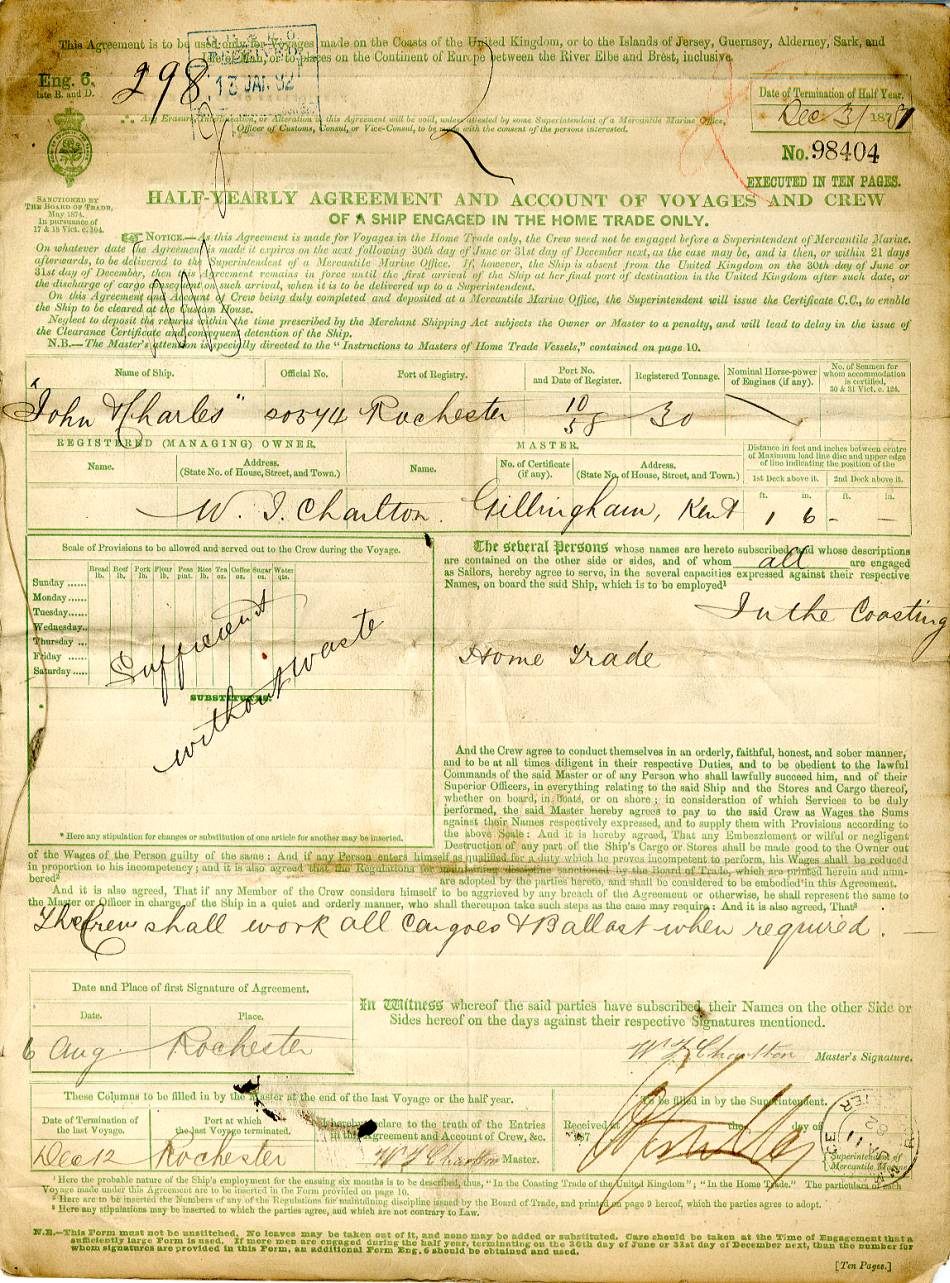 This Agreement is to be used only for Voyages made on the Coasts of the United Kingdom, or to the Islands of Jersey, Guernsey, Alderney, Sark, and
Isle of Man, or to places on the Continent of Europe between the River Elbe and Brest, inclusive.
Eng. 6.
late B. and D.
298
13 JAN. 82
Any Erasure, Interlineation, or Alteration in this Agreement will be void, unless attested by some Superintendent of a Mercantile Marine Office,
Officer of Customs, Consul, or Vice-Consul, to be made with the consent of the persons interested.
Date of Termination of Half Year.
Dec 31 1881
No. 98404
EXECUTED IN TEN PAGES.
SANCTIONED BY
THE BOARD OF TRADE,
May 1874.
In pursuance of
17 & 18 Vict. c. 104.
HALF-YEARLY AGREEMENT AND ACCOUNT OF VOYAGES AND CREW
OF A SHIP ENGAGED IN THE HOME TRADE ONLY.
NOTICE.—As this Agreement is made for Voyages in the Home Trade only, the Crew need not be engaged before a Superintendent of Mercantile Marine.
On whatever date the Agreement is made it expires on the next following 30th day of June or 31st day of December next, as the case may be, and is then, or within 21 days
afterwards, to be delivered to the Superintendent of a Mercantile Marine Office. If, however, the Ship is absent from the United Kingdom on the 30th day of June or
31st day of December, then the Agreement remains in force until the first arrival of the Ship at her final port of destination in the United Kingdom after such date, or
the discharge of cargo consequent on such arrival, when it is to be delivered up to a Superintendent.
On this Agreement and Account of Crew being duly completed and deposited at a Mercantile Marine Office, the Superintendent will issue the Certificate C.C., to enable
the Ship to be cleared at the Custom House.
Neglect to deposit the returns within the time prescribed by the Merchant Shipping Act subjects the Owner or Master to a penalty, and will lead to delay in the issue of
the Clearance Certificate and consequent detention of the Ship.
N.B.—The Master's attention is specially directed to the "Instructions to Masters of Home Trade Vessels," contained on page 10.
Name of Ship. Official No. Port of Registry. Port No. and Date of Register. Registered Tonnage. Nominal Horse-power of Engines (if any). No. of Seamen for whom accommodation is certified, 30 & 31 Vict. c. 124.
"John & Charles" 20574 Rochester 10/58 30
REGISTERED (MANAGING) OWNER. MASTER. Distance in feet and inches between centre of Maximum load line disc and upper edge of line indicating the position of the
Name. Address. (State No. of House, Street, and Town.) Name. No. of Certificate (if any). Address. (State No. of House, Street, and Town.) 1st Deck above it. 2nd Deck above it.
ft. in. ft. in.
W. J. Charlton. Gillingham, Kent 1 6 - -
Scale of Provisions to be allowed and served out to the Crew during the Voyage.
Bread lb. Beef lb. Pork lb. Flour lb. Peas pint. Rice lb. Tea oz. Coffee oz. Sugar oz. Water qts.
Sunday
Monday
Tuesday
Wednesday
Thursday
Friday
Saturday
Sufficient
without waste
SUBSTITUTES.
* Here any stipulation for changes or substitution of one article for another may be inserted.
The several Persons whose names are hereto subscribed, and whose descriptions
are contained on the other side or sides, and of whom all are engaged
as Sailors, hereby agree to serve, in the several capacities expressed against their respective
Names, on board the said Ship, which is to be employed¹
In the Coasting
Home Trade
And the Crew agree to conduct themselves in an orderly, faithful, honest, and sober manner,
and to be at all times diligent in their respective Duties, and to be obedient to the lawful
Commands of the said Master or of any Person who shall lawfully succeed him, and of their
Superior Officers, in everything relating to the said Ship and the Stores and Cargo thereof,
whether on board, in Boats, or on shore; in consideration of which Services to be duly
performed, the said Master hereby agrees to pay to the said Crew as Wages the Sums
against their Names respectively expressed, and to supply them with Provisions according to
the above Scale: And it is hereby agreed, That any Embezzlement or wilful or negligent
Destruction of any part of the Ship's Cargo or Stores shall be made good to the Owner out
of the Wages of the Person guilty of the same: And if any Person enters himself as qualified for a duty which he proves incompetent to perform, his Wages shall be reduced
in proportion to his incompetency; and it is also agreed that the Regulations for maintaining discipline sanctioned by the Board of Trade, which are printed herein and num-
bered² are adopted by the parties hereto, and shall be considered to be embodied in this Agreement.
And it is also agreed, That if any Member of the Crew considers himself to be aggrieved by any breach of the Agreement or otherwise, he shall represent the same to
the Master or Officer in charge of the Ship in a quiet and orderly manner, who shall thereupon take such steps as the case may require: And it is also agreed, That³
The Crew shall work all Cargoes & Ballast when required.
Date and Place of first Signature of Agreement.
Date. Place.
6 Aug Rochester
In Witness whereof the said parties have subscribed their Names on the other Side or
Sides hereof on the days against their respective Signatures mentioned.
W J Charlton Master's Signature.
These Columns to be filled in by the Master at the end of the last Voyage or the half year.
Date of Termination of the last Voyage. Port at which the last Voyage terminated. I hereby declare to the truth of the Entries in this Agreement and Account of Crew, &c.
Dec 12 Rochester W J Charlton Master.
To be filled in by the Superintendent.
Received at the day of
187
Superintendent of
Mercantile Marine
¹ Here the probable nature of the Ship's employment for the ensuing six months is to be described, thus, "In the Coasting Trade of the United Kingdom"; "In the Home Trade." The particulars of each
Voyage made under this Agreement are to be inserted in the Form provided on page 10.
² Here are to be inserted the Numbers of any of the Regulations for maintaining discipline issued by the Board of Trade, and printed on page 9 hereof, which the parties agree to adopt.
³ Here any stipulations may be inserted to which the parties agree, and which are not contrary to Law.
N.B.—This Form must not be unstitched. No leaves may be taken out of it, and none may be added or substituted. Care should be taken at the Time of Engagement that a
sufficiently large Form is used. If more men are engaged during the half year, terminating on the 30th day of June or 31st day of December next, than the number for
whom signatures are provided in this Form, an additional Form Eng. 6 should be obtained and used.
[Ten Pages.]